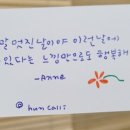 말 멋진날이야 이런날에
있다는 느낌만으로도 행복해
-Anne
@huncalli